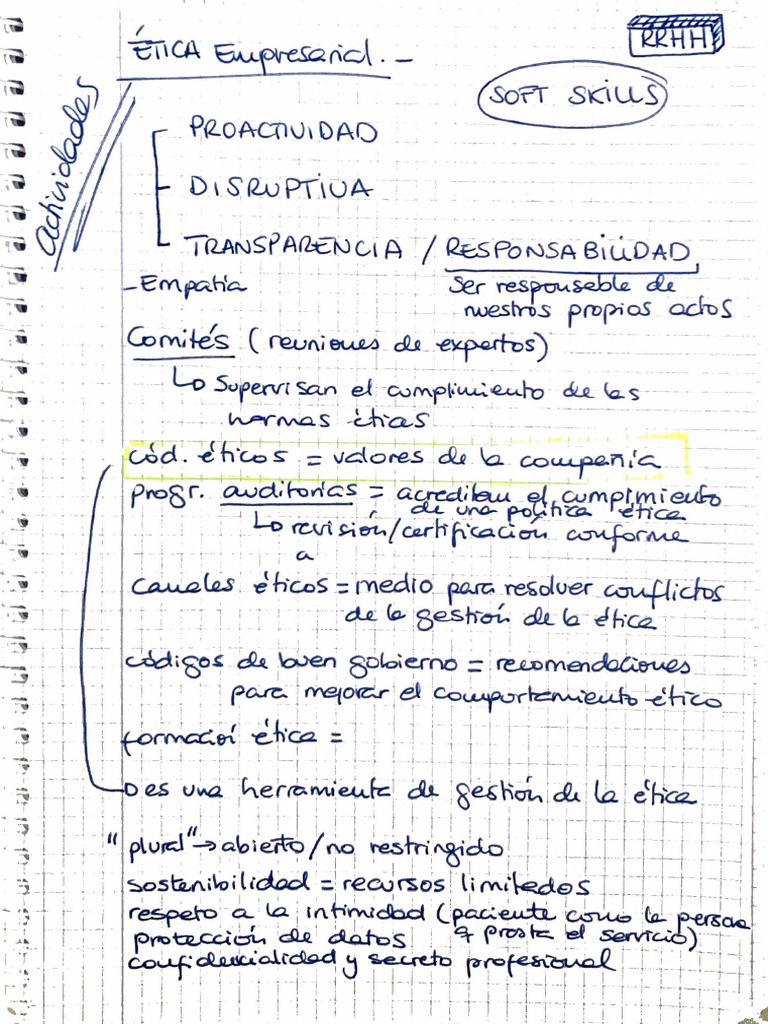 ÉTICA Empresarial. -
RRHH
SOFT SKILLS
Actividades
PROACTIVIDAD
DISRUPTIVA
TRANSPARENCIA / RESPONSABILIDAD
- Empatía
Ser responsable de
nuestros propios actos
Comités (reuniones de expertos)
↳ Supervisan el cumplimiento de las
normas éticas
Cód. éticos = valores de la compañía
progr. auditorías = acreditan el cumplimiento
de una política ética
↳ revisión/certificación conforme
a
canales éticos = medio para resolver conflictos
de la gestión de la ética
códigos de buen gobierno = recomendaciones
para mejorar el comportamiento ético
formació ética =
→ es una herramienta de gestión de la ética
"plural" → abierto/no restringido
sostenibilidad = recursos limitados
respeto a la intimidad (paciente como la persona
protección de datos q presta el servicio)
confidencialidad y secreto profesional